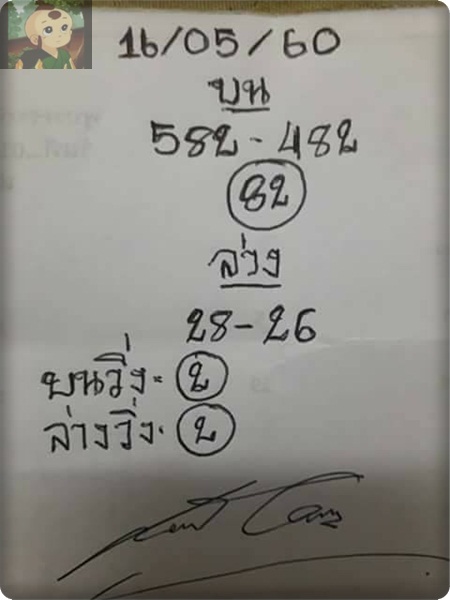 16/05/60
บน
582 - 482
82
ล่าง
28 - 26
บนวิ่ง = 2
ล่างวิ่ง · 2